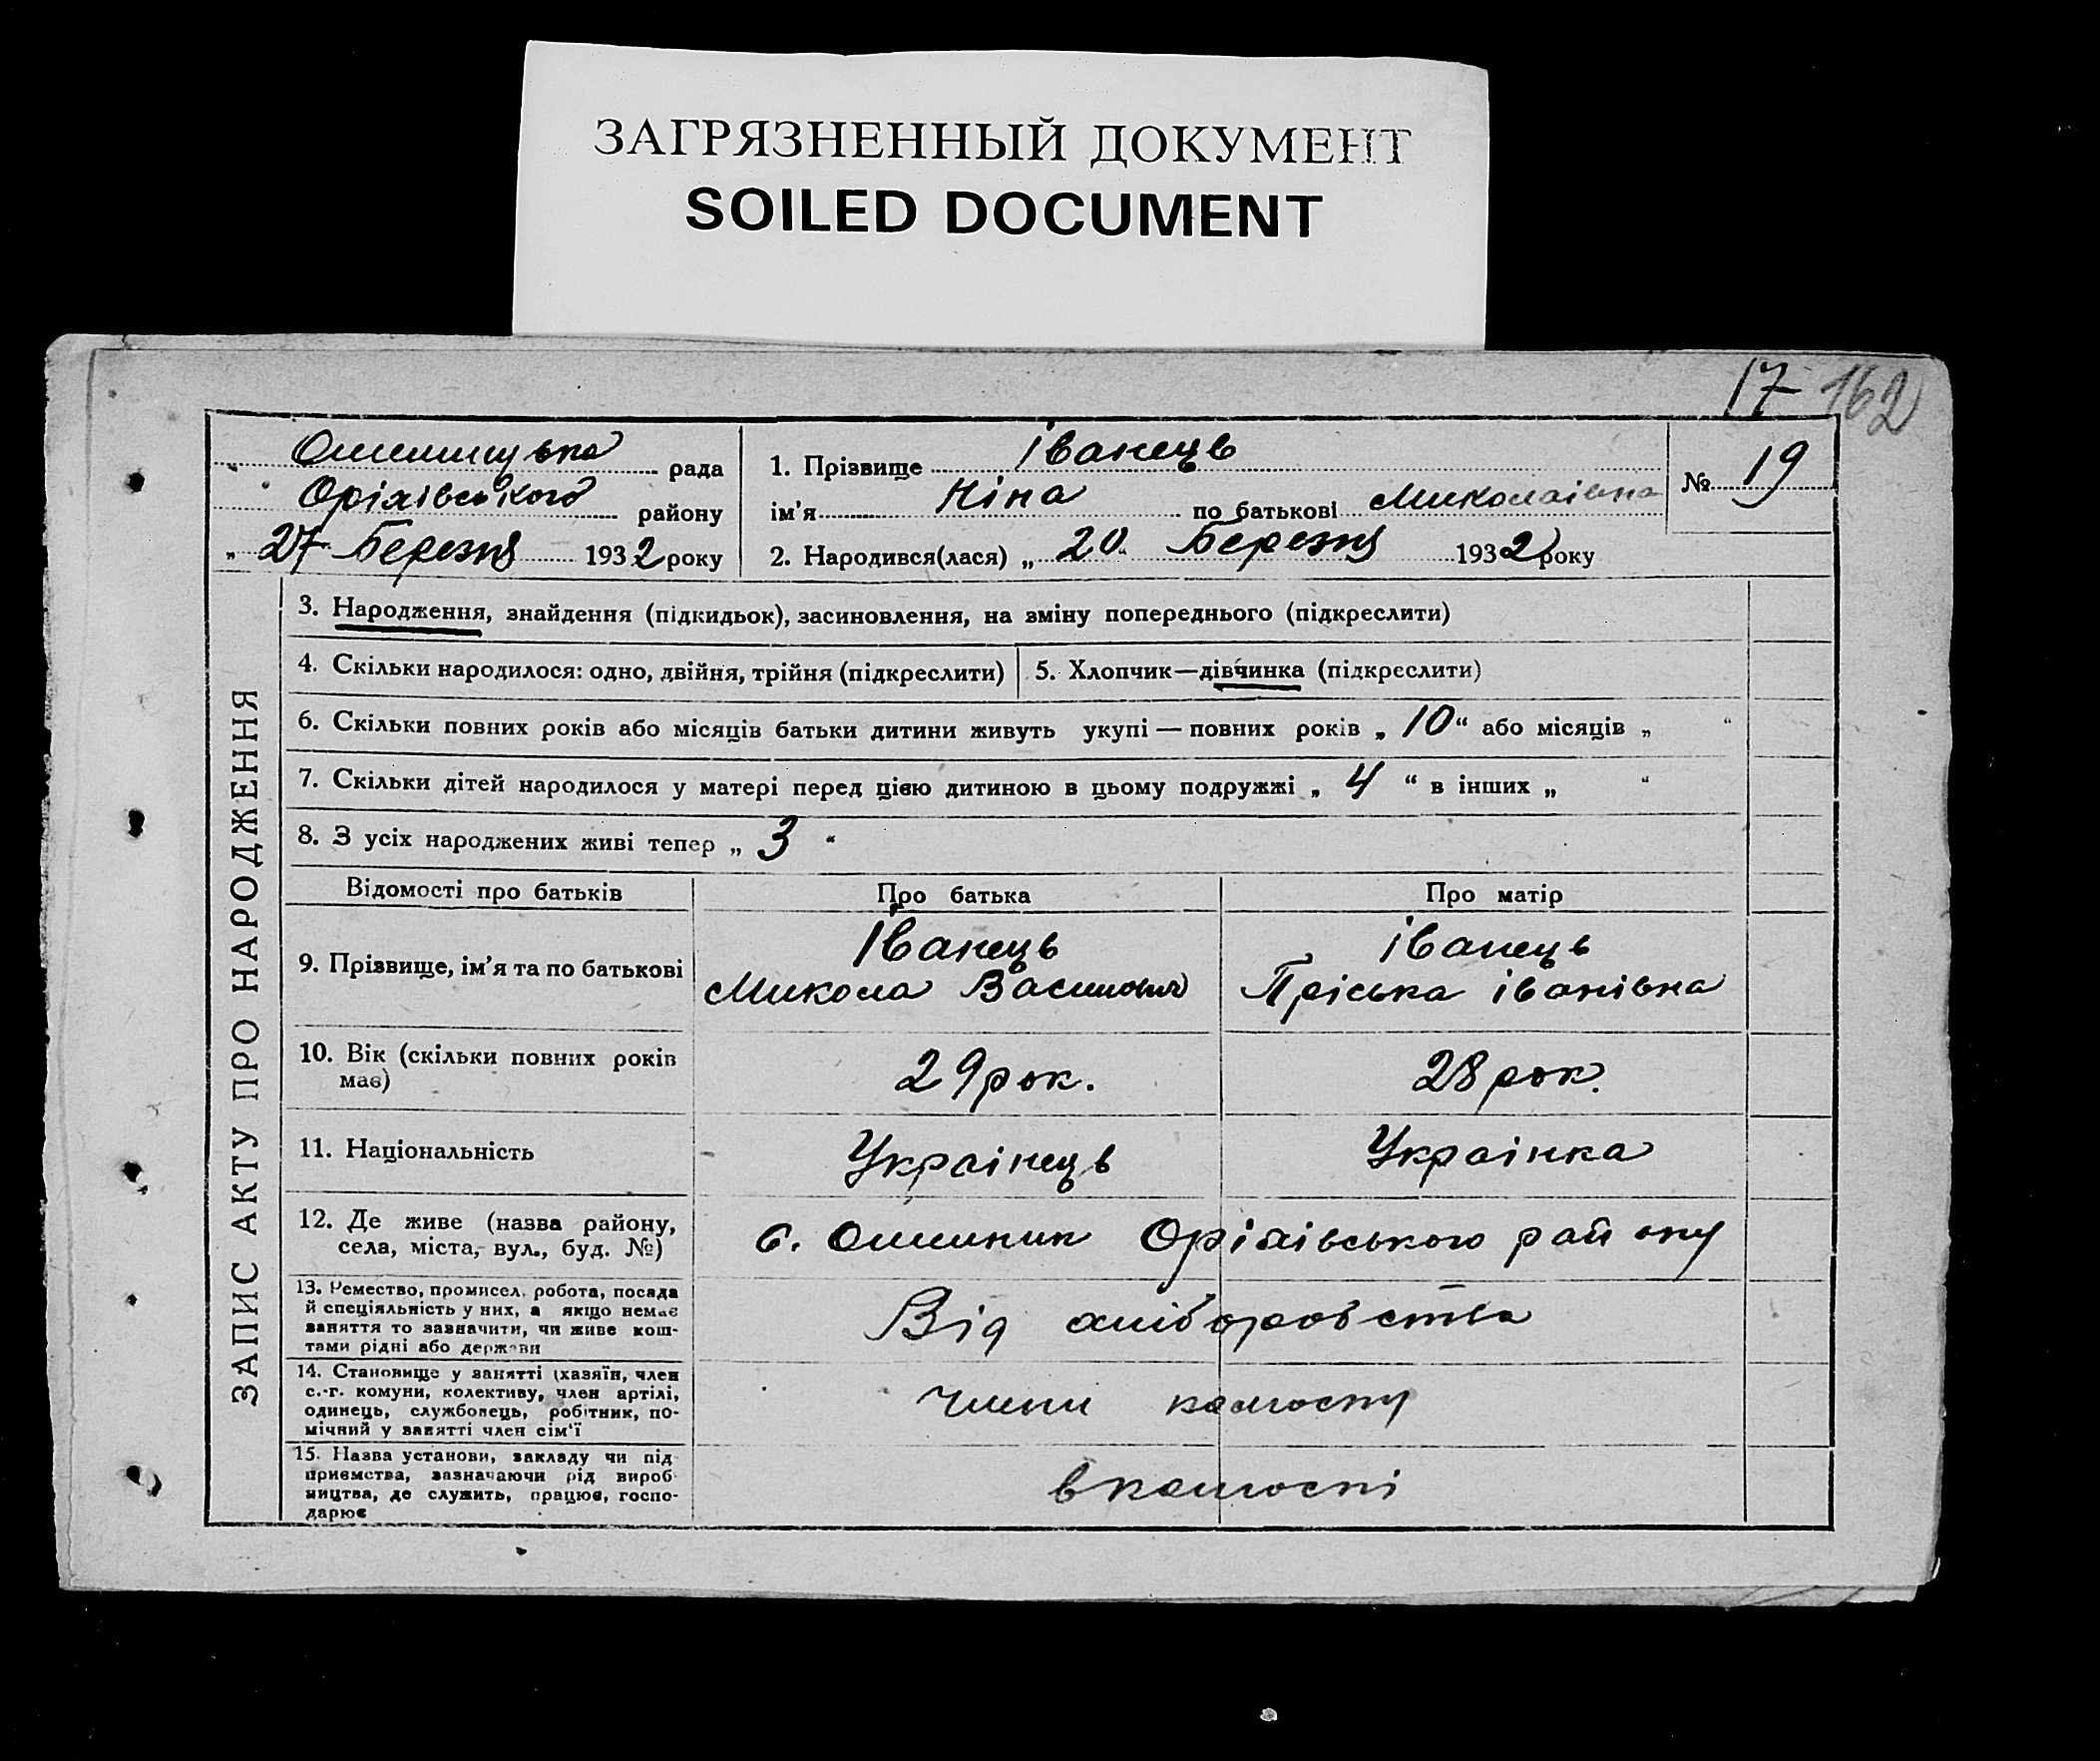 ЗАГРЯЗНЕННЫЙ ДОКУМЕНТ
SOILED DOCUMENT
17 162
рада
Оріхівського району
„ 27 Березня 1932 року
1. Прізвище Іванець
ім’я Ніна по батькові Миколаівна
№ 19
2. Народився(лася) „ 20 “ Березня 1932 року
ЗАПИС АКТУ ПРО НАРОДЖЕННЯ
3. Народження, знайдення (підкидьок), засиновлення, на зміну попереднього (підкреслити)
4. Скільки народилося: одно, двійня, трійня (підкреслити)
5. Хлопчик—дівчинка (підкреслити)
6. Скільки повних років або місяців батьки дитини живуть укупі — повних років „ 10 “ або місяців „ “
7. Скільки дітей народилося у матері перед цією дитиною в цьому подружжі „ 4 “ в інших „ “
8. З усіх народжених живі тепер „ 3 “
Відомості про батьків
Про батька
Про матір
9. Прізвище, ім’я та по батькові
Іванець
Микола Василович
іванець
Пріська іванівна
10. Вік (скільки повних років
має)
29 рок.
28 рок.
11. Національність
Украінець
Украінка
12. Де живе (назва району,
села, міста, вул., буд. №)
с. Оріхівського району
13. Ремество, промисел, робота, посада
й спеціяльність у них, а якщо немає
заняття то зазначити, чи живе кош-
тами рідні або держави
Від хліборобства
14. Становище у занятті (хазяїн, член
с.-г. комуни, колективу, член артілі,
одинець, службовець, робітник, по-
мічний у занятті член сім’ї
члени колгоспу
15. Назва установи, закладу чи під
приємства, зазначаючи рід вироб
ництва, де служить, працює, госпо-
дарює
в колгоспі